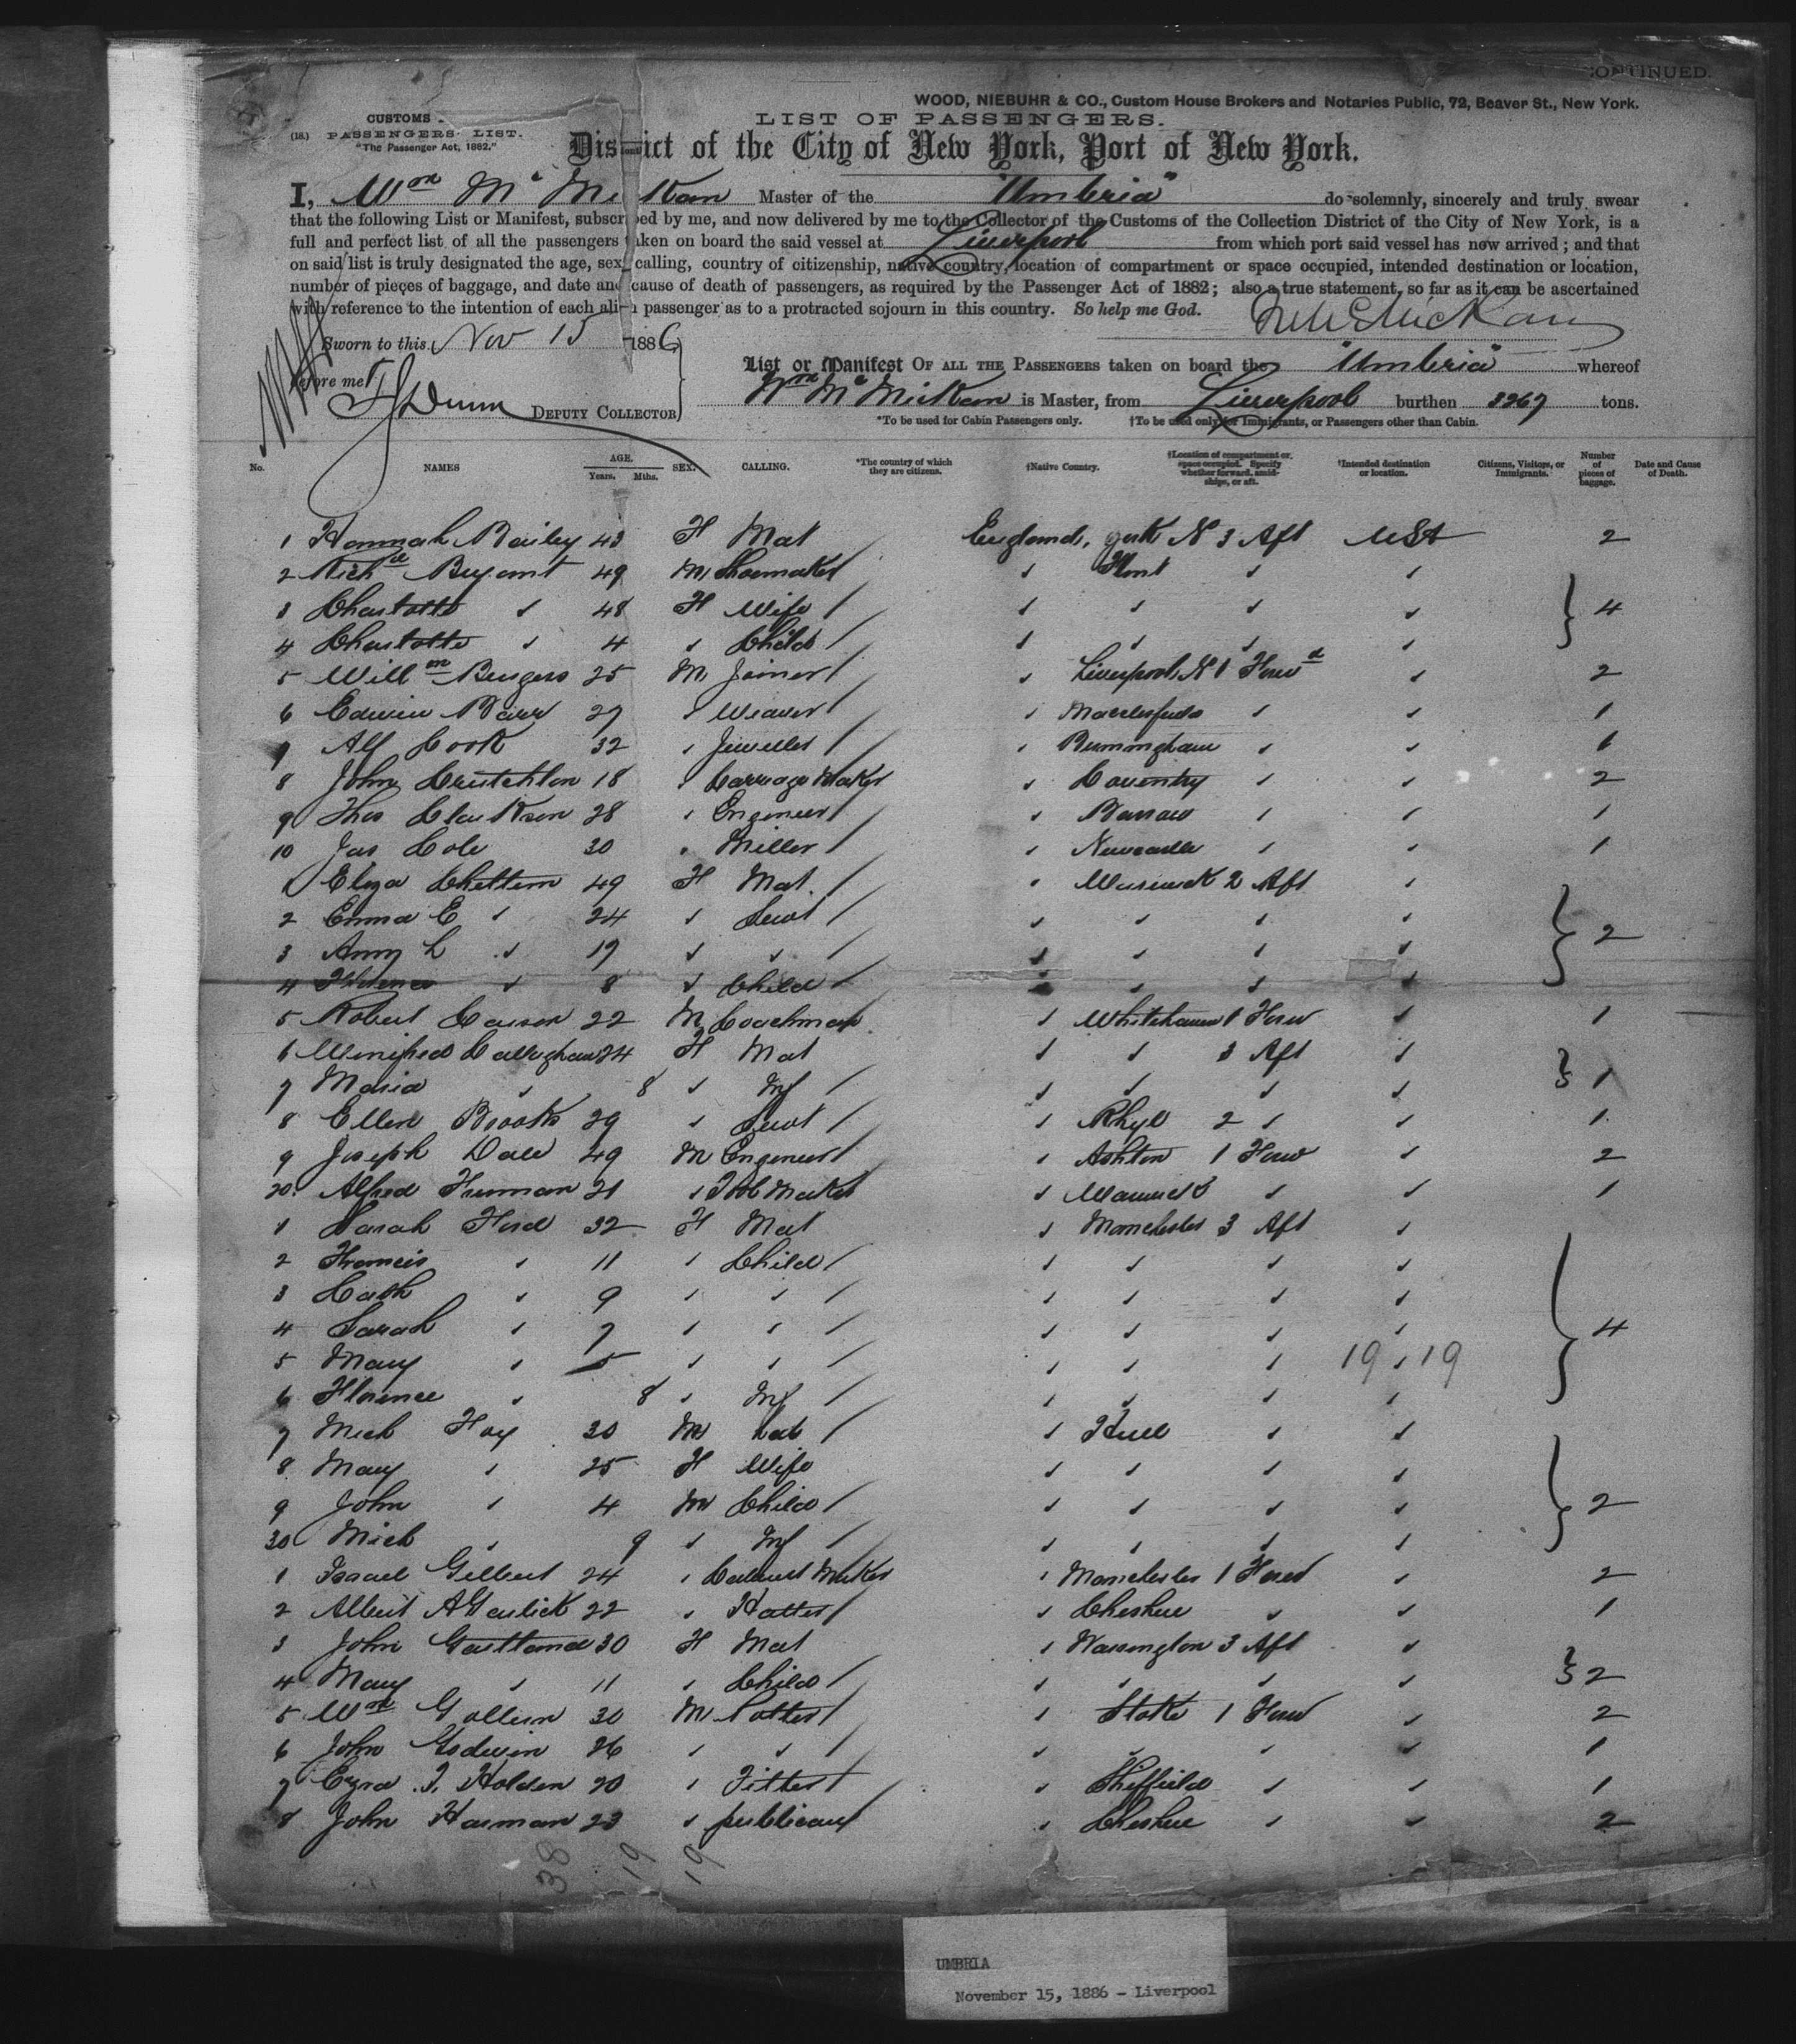 CONTINUED.
WOOD, NIEBUHR & CO., Custom House Brokers and Notaries Public, 72, Beaver St., New York.
CUSTOMS
LIST OF PASSENGERS.
(18.) PASSENGERS LIST.
"The Passenger Act, 1882."
District of the City of New York, Port of New York.
I, Wm McMickan Master of the "Umbria" do solemnly, sincerely and truly swear
that the following List or Manifest, subscribed by me, and now delivered by me to the Collector of the Customs of the Collection District of the City of New York, is a
full and perfect list of all the passengers taken on board the said vessel at Liverpool from which port said vessel has now arrived; and that
on said list is truly designated the age, sex, calling, country of citizenship, native country, location of compartment or space occupied, intended destination or location,
number of pieces of baggage, and date and cause of death of passengers, as required by the Passenger Act of 1882; also a true statement, so far as it can be ascertained
with reference to the intention of each alien passenger as to a protracted sojourn in this country. So help me God.
Sworn to this Nov 15 1886
before me
Dunn DEPUTY COLLECTOR
List or Manifest OF ALL THE PASSENGERS taken on board the "Umbria" whereof
Wm McMickan is Master, from Liverpool burthen 3267 tons.
*To be used for Cabin Passengers only. †To be used only for Immigrants, or Passengers other than Cabin.
No. NAMES AGE. Years. Mths. SEX. CALLING. *The country of which they are citizens. †Native Country. †Location of compartment or space occupied. Specify whether forward, amidships, or aft. †Intended destination or location. Citizens, Visitors, or Immigrants. Number of pieces of baggage. Date and Cause of Death.
1 Hannah Bailey 43 F Mat England, York No 3 Aft USA 2
2 Richd 49 M Shoemaker
3 Charlotte 48 F Wife 4
4 Charlotte 4 Child
5 Willm 25 M Joiner Liverpool No 1 Forwd 2
6 Edwin Barr 27 Weaver Macclesfield 1
7 Alf Cook 32 Jeweller Birmingham 1
8 John 18 Carriage Maker Coventry 2
9 Thos Clarkson 28 Engineer Barrow 1
10 Jas Cole 30 Miller Newcastle 1
1 Eliza 49 F Mat Warwick 2 Aft
2 Emma E 24 Servt 2
3 Amy L 19
4 Florence 8 Child
5 Robert 22 M Coachman Whitehaven 1 Forw 1
6 Winifred Callaghan 24 F Mat 3 Aft
7 Maria 8 Inf 1
8 Ellen Brooks 29 Servt Rhyl 2 1
9 Joseph Dale 49 M Engineer Ashton 1 Forw 2
20 Alfred Freeman 21 Tool Maker Warwick 1
1 Sarah Ford 32 F Mat Manchester 3 Aft
2 Francis 11 Child
3 Cath 9
4 Sarah 7 4
5 Mary 5 19 19
6 Florence 8 Inf
7 Mich Foy 30 M Lab Hull
8 Mary 25 F Wife
9 John 4 M Child 2
30 Mich 9 Inf
1 Israel Gilbert 24 Cabinet Maker Manchester 1 Forwd 2
2 Albert A Garlick 22 Hatter Cheshire 1
3 John 30 F Mat Warrington 3 Aft
4 Mary 11 Child 2
5 Wm 30 M Potter Stoke 1 Forw 2
6 John Godwin 26 1
7 Ezra T. Holden 20 Fitter Sheffield 1
8 John Harman 23 publican Cheshire 2
38 19 19
UMBRIA
November 15, 1886 - Liverpool